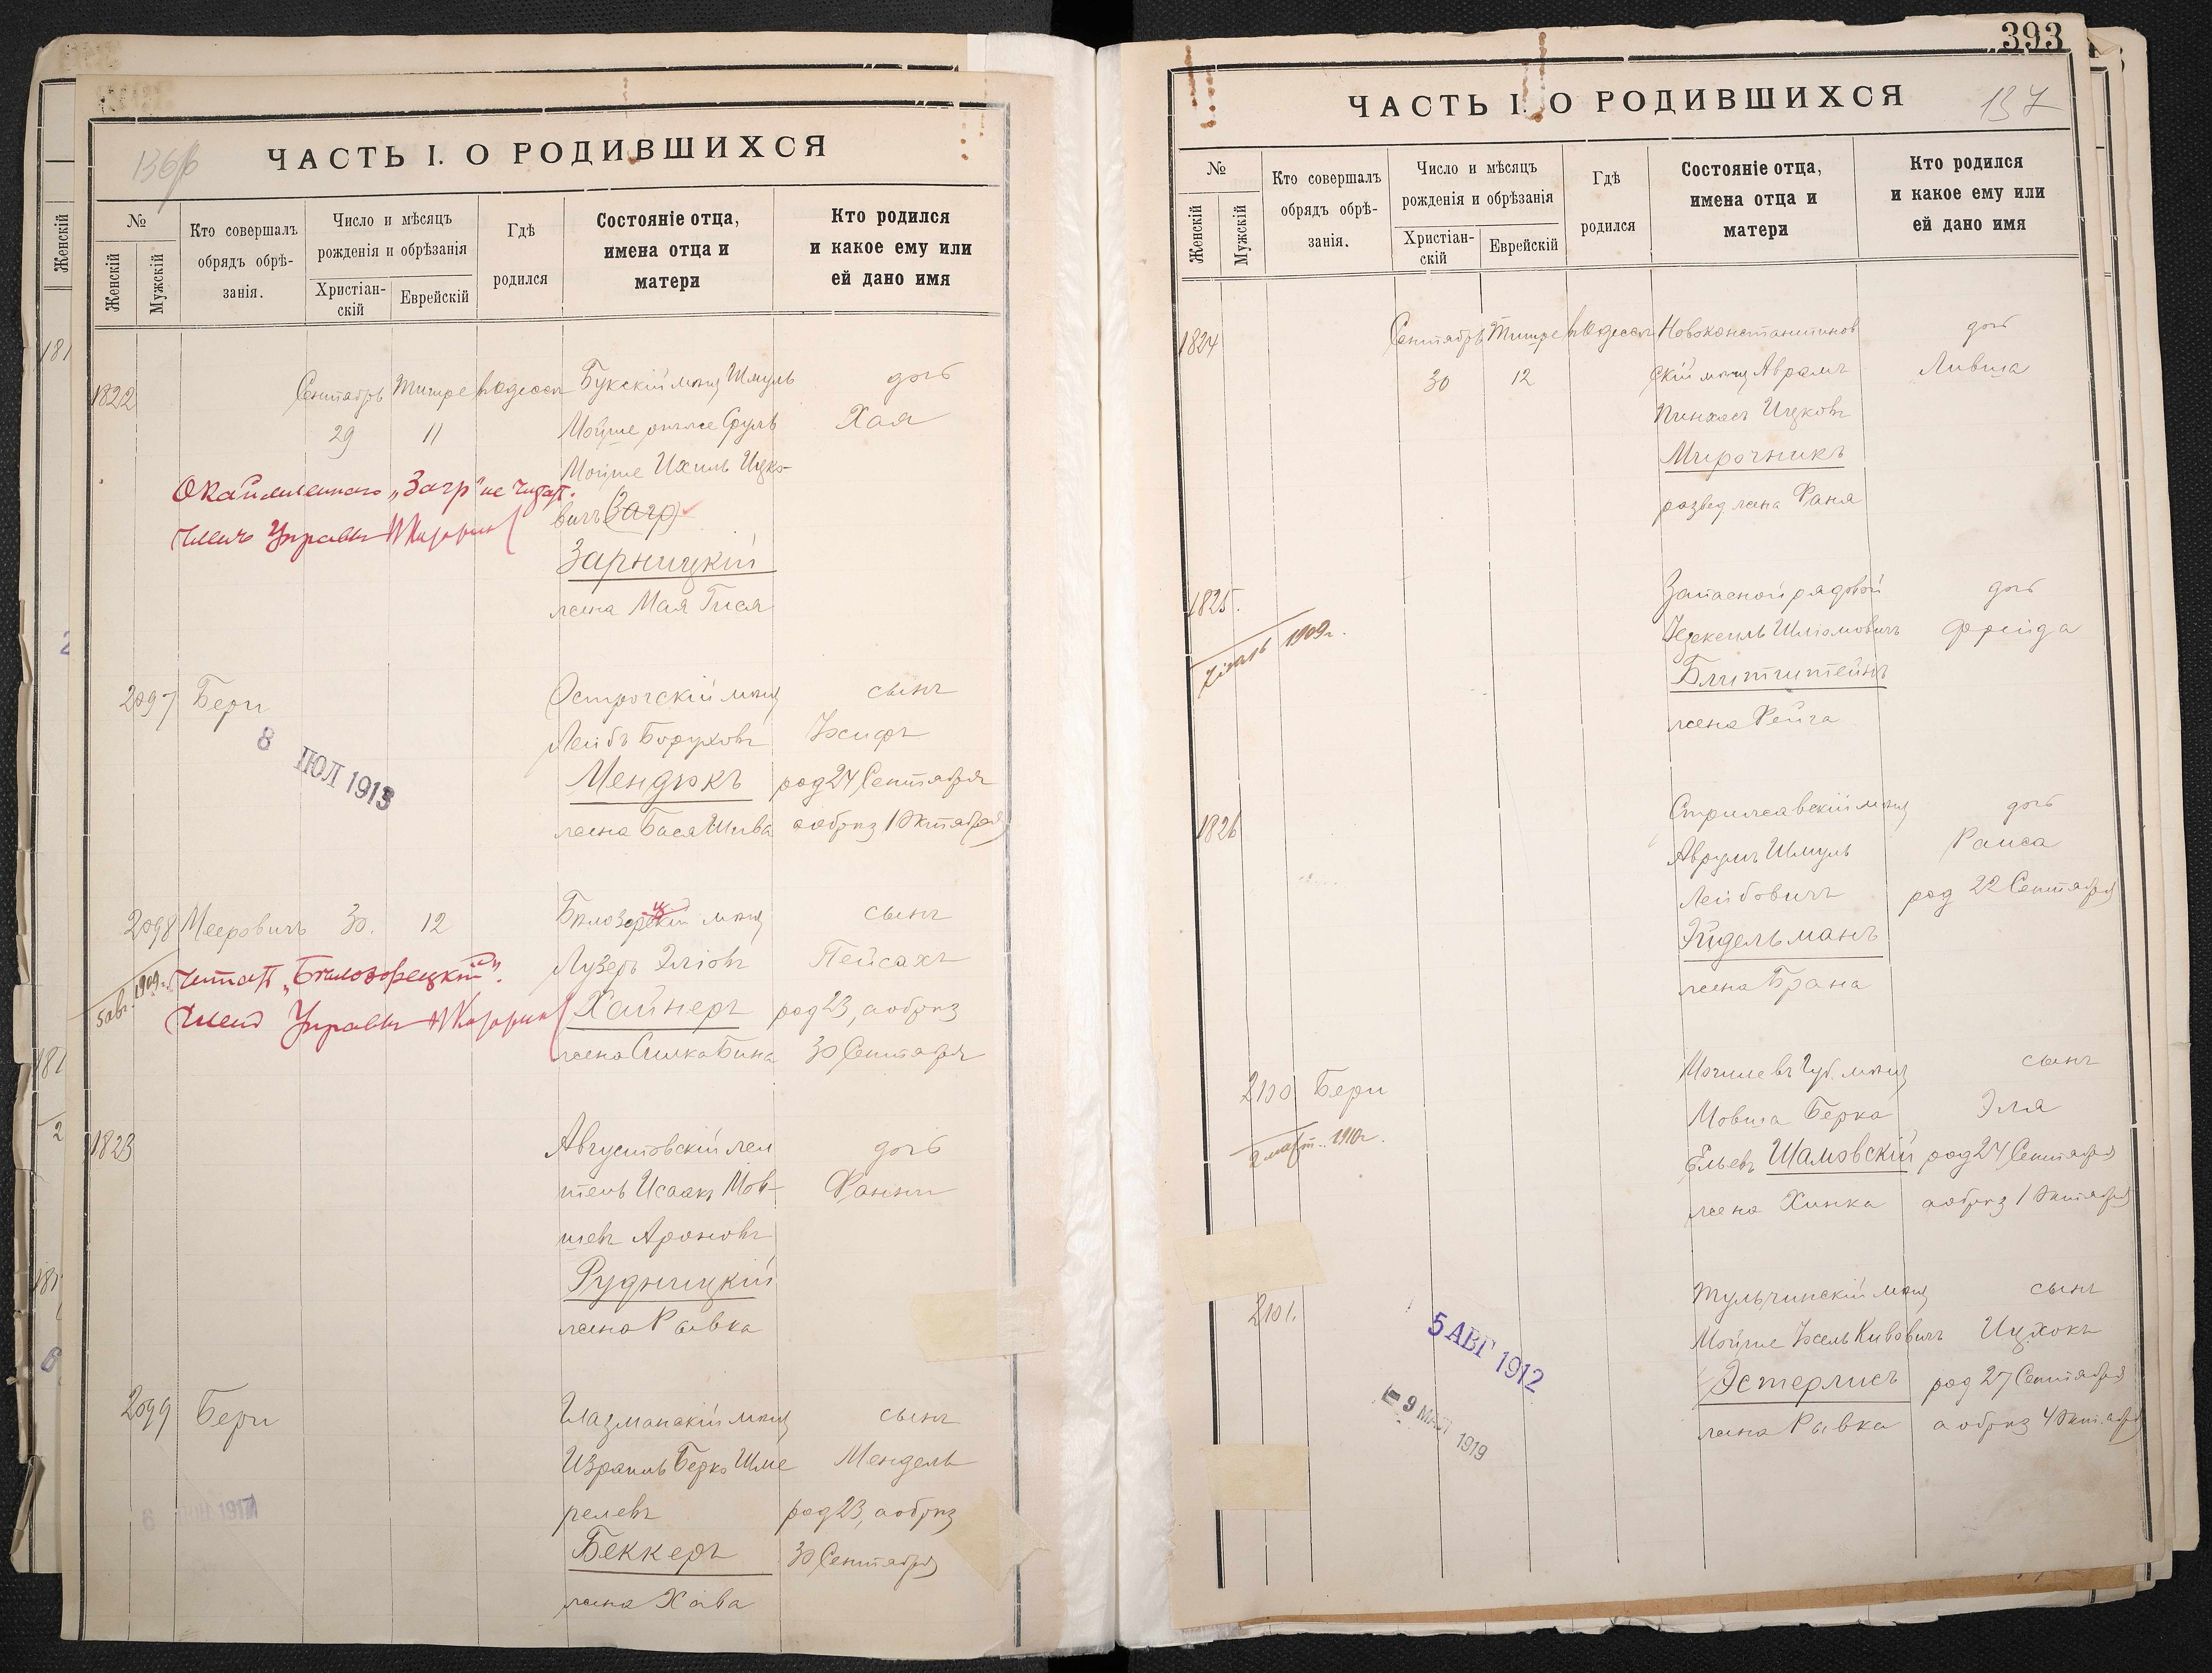 136/б
ЧАСТЬ I. О РОДИВШИХСЯ
№
Женскій
Мужскій
Кто совершалъ
обрядъ обрѣ-
занія.
Число и мѣсяцъ
рожденія и обрѣзанія
Христіан-
скій
Еврейскій
Гдѣ
родился
Состояніе отца,
имена отца и
матери
Кто родился
и какое ему или
ей дано имя
1822
Сентябрь Тишре въ Одессѣ Букскій мѣщ Шмуль дочь
29 11 Мойше онъ же Сруль Хая
Мойше Ихиль Ицко-
вичъ (Загр)
Окаймленного „Загр" не читать.
Членъ Управы
Зарницкій
жена Мая Гися
2097 Бери Острогскій мѣщ сынъ
Лейбъ Боруховъ Іосифъ
8 ІЮЛ 1913
Мендюкъ род 24 Сентября
жена Бася Шива а обрѣз 1 Октября
2098 Мееровичъ 30. 12 Бѣлозерскій мѣщ сынъ
Лузеръ Эліовъ Пейсахъ
5 авг. 1909 г. Читать „Бѣлозорецкій".
Членъ Управы
Хайнеръ род 23, а обрѣз
жена Симка Бина 30 Сентября
1823 Августовскій жи дочь
тель Исаакъ Мов- Фанни
шевъ Ароновъ
Рудницкій
жена Рывка
2099 Бери мѣщ сынъ
Израиль Берко Шме Мендель
релевъ род 23, а обрѣз
Беккеръ 30 Сентября
жена Хава
393
137
ЧАСТЬ I. О РОДИВШИХСЯ
№
Женскій
Мужскій
Кто совершалъ
обрядъ обрѣ-
занія.
Число и мѣсяцъ
рожденія и обрѣзанія
Христіан-
скій
Еврейскій
Гдѣ
родился
Состояніе отца,
имена отца и
матери
Кто родился
и какое ему или
ей дано имя
1824 Сентябрь Тишре въ Одессѣ Новоконстантинов дочь
30 12 скій мѣщ Аврамъ Ливша
Пинхасъ Ицковъ
Мирочникъ
развед. жена Фаня
1825. Запасной рядовой дочь
1909 г. Іезекеиль Шліомовичъ Фрейда
Блитштейнъ
жена Рейза
1826 мѣщ дочь
Аврумъ Шмуль Раиса
Лейбовичъ род 22 Сентября
Эйдельманъ
жена Брана
2100 Бери Могилевъ Губ. мѣщ сынъ
Мовша Берка Эля
2 март. 1910 г.
Ельевъ Шамовскій род 24 Сентября
жена Хинка а обрѣз 1 Октября
2101. Тульчинскій мѣщ сынъ
5 АВГ 1912
Мойше Іосель Кивовичъ Ицхокъ
Эстерлисъ род 27 Сентября
9 МАЙ 1919
жена Рывка а обрѣз 4 Октября